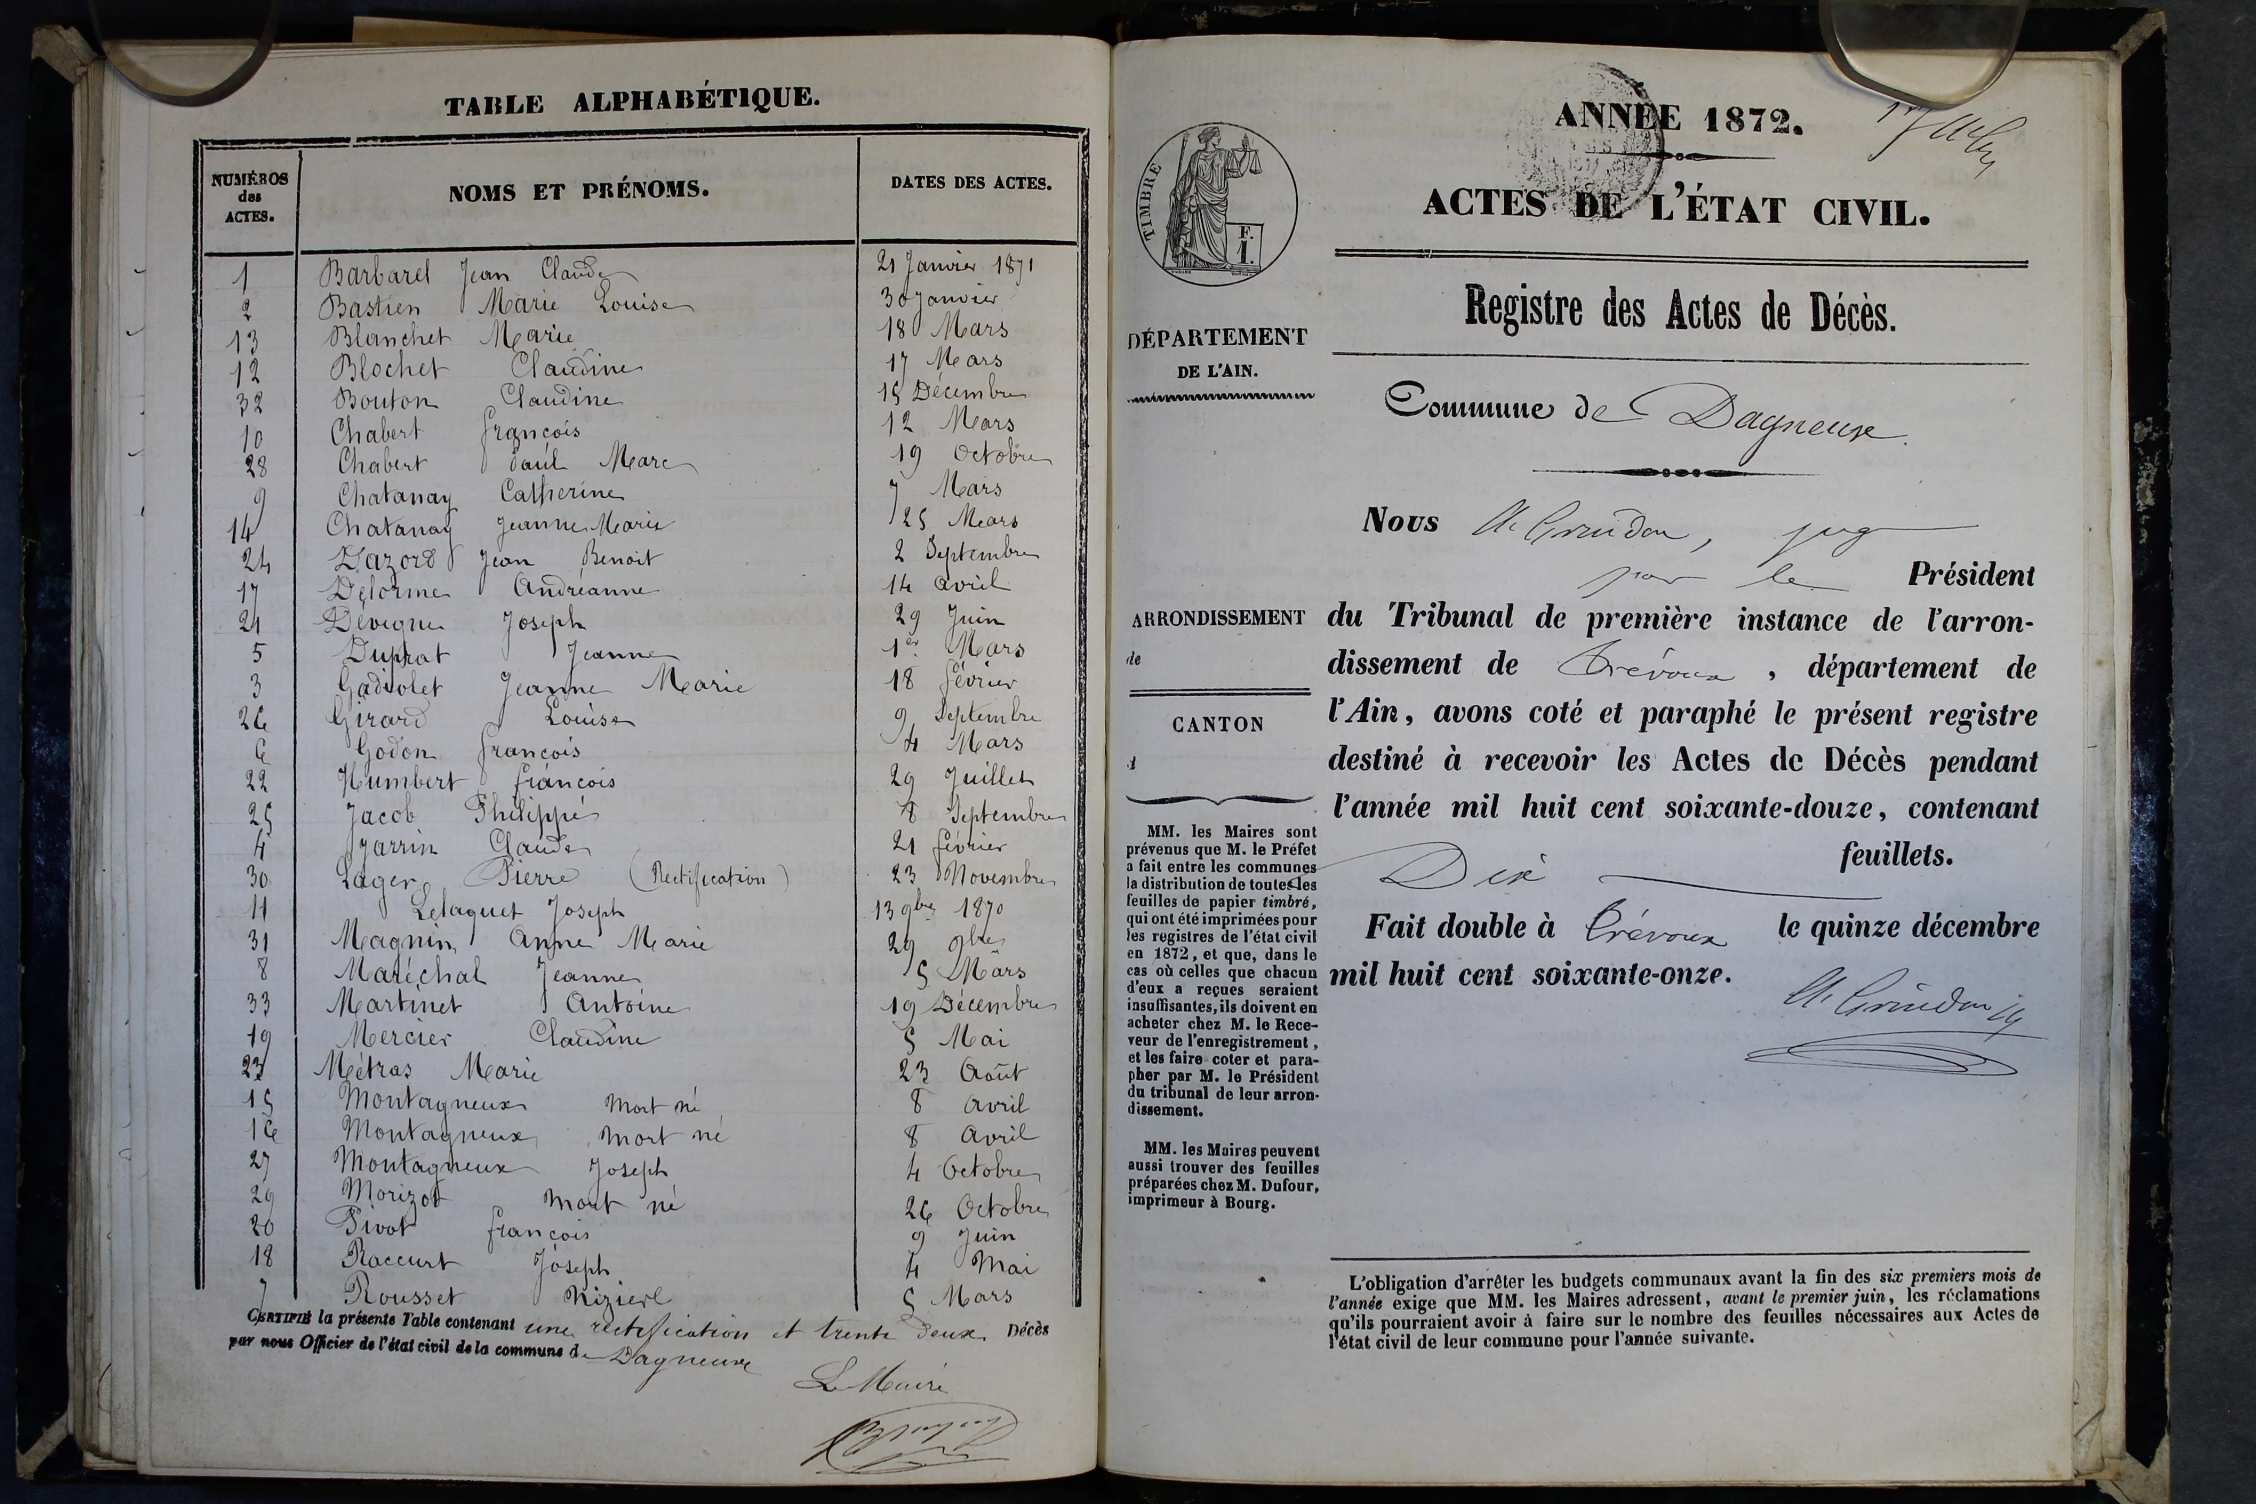 TABLE ALPHABÉTIQUE.
NUMÉROS des ACTES. NOMS ET PRÉNOMS. DATES DES ACTES.
1 Barbaret Jean Claude 21 Janvier 1871
2 Bastien Marie Louise 30 Janvier
13 Blanchet Marie 18 Mars
12 Blochet Claudine 17 Mars
32 Bouton Claudine 15 Décembre
10 Chabert françois 12 Mars
28 Chabert Paul Marc 19 Octobre
9 Chatanay Catherine 7 Mars
14 Chatanay Jeanne Marie 25 Mars
24 Dazord Jean Benoit 2 Septembre
17 Delorme Andréanne 14 avril
21 Devigne Joseph 29 Juin
5 Duprat Jeanne 1er Mars
3 Gadiolet Jeanne Marie 18 février
26 Girard Louise 9 Septembre
6 Godon françois 4 Mars
22 Humbert françois 29 Juillet
25 Jacob Philippe 8 Septembre
4 Jarrin Claude 21 février
30 Lager Pierre (Rectification) 23 Novembre
11 Lelaquet Joseph 13 9bre 1870
31 Magnin Anne Marie 29 9bre
8 Maréchal Jeanne 5 Mars
33 Martinet Antoine 19 Décembre
19 Mercier Claudine 5 Mai
23 Métras Marie 23 Août
15 Montagneux Mort né 8 avril
16 Montagneux mort né 8 Avril
27 Montagneux Joseph 4 Octobre
29 Morizot Mort né 26 Octobre
20 Pivot françois 9 Juin
18 Raccurt Joseph 4 Mai
7 Rousset Nizierl 5 Mars
CERTIFIÉ la présente Table contenant une rectification et trente deux Décès
par nous Officier de l'état civil de la commune de Dagneux
Le Maire
ANNÉE 1872.
ACTES DE L'ÉTAT CIVIL.
TIMBRE
F.
1.
Registre des Actes de Décès.
DÉPARTEMENT
DE L'AIN.
Commune de Dagneux.
Nous A. Grindon, juge
pour le Président
ARRONDISSEMENT
de
CANTON
d
du Tribunal de première instance de l'arron-
dissement de Trévoux, département de
l'Ain, avons coté et paraphé le présent registre
destiné à recevoir les Actes de Décès pendant
l'année mil huit cent soixante-douze, contenant
Dix feuillets.
Fait double à Trévoux le quinze décembre
mil huit cent soixante-onze.
A. Grindon
MM. les Maires sont
prévenus que M. le Préfet
a fait entre les communes
la distribution de toutes les
feuilles de papier timbré,
qui ont été imprimées pour
les registres de l'état civil
en 1872, et que, dans le
cas où celles que chacun
d'eux a reçues seraient
insuffisantes, ils doivent en
acheter chez M. le Rece-
veur de l'enregistrement,
et les faire coter et para-
pher par M. le Président
du tribunal de leur arron-
dissement.
MM. les Maires peuvent
aussi trouver des feuilles
préparées chez M. Dufour,
imprimeur à Bourg.
L'obligation d'arrêter les budgets communaux avant la fin des six premiers mois de
l'année exige que MM. les Maires adressent, avant le premier juin, les réclamations
qu'ils pourraient avoir à faire sur le nombre des feuilles nécessaires aux Actes de
l'état civil de leur commune pour l'année suivante.